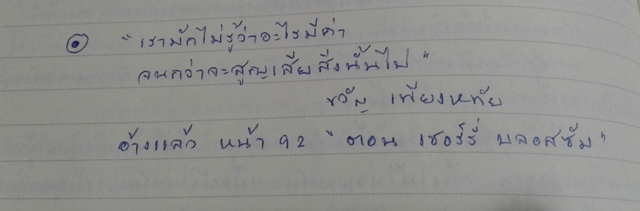 "เรามักไม่รู้ว่าอะไรมีค่า
จนกว่าจะสูญเสียสิ่งนั้นไป"
ขวัญ เพียงหทัย
อ้างแล้ว หน้า 92 "ตอน เชอร์รี่ บลอสซัม"